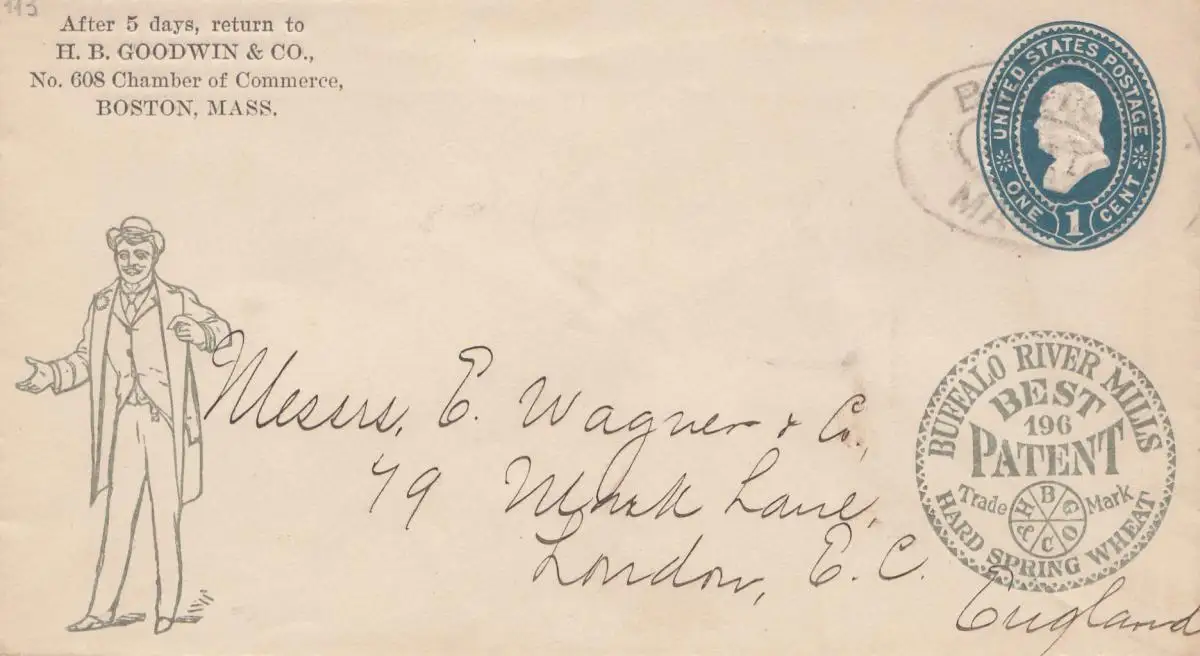 After 5 days, return to
H. B. GOODWIN & CO.,
No. 608 Chamber of Commerce,
BOSTON, MASS.
UNITED STATES POSTAGE
ONE 1 CENT
Messrs. E. Wagner & Co.,
79 Mark Lane,
London, E. C.
England
BUFFALO RIVER MILLS
BEST
196
PATENT
Trade Mark
H B G & C O
HARD SPRING WHEAT